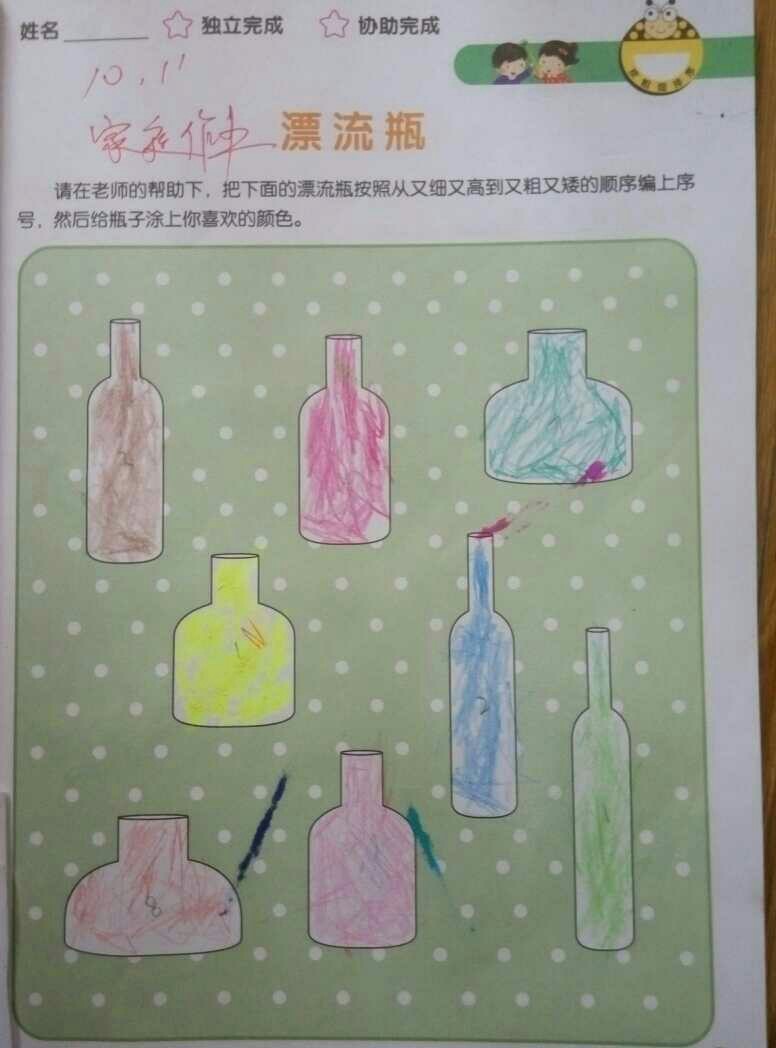 姓名 独立完成 协助完成
10.11
家庭作业 漂流瓶
请在老师的帮助下，把下面的漂流瓶按照从又细又高到又粗又矮的顺序编上序
号，然后给瓶子涂上你喜欢的颜色。
8